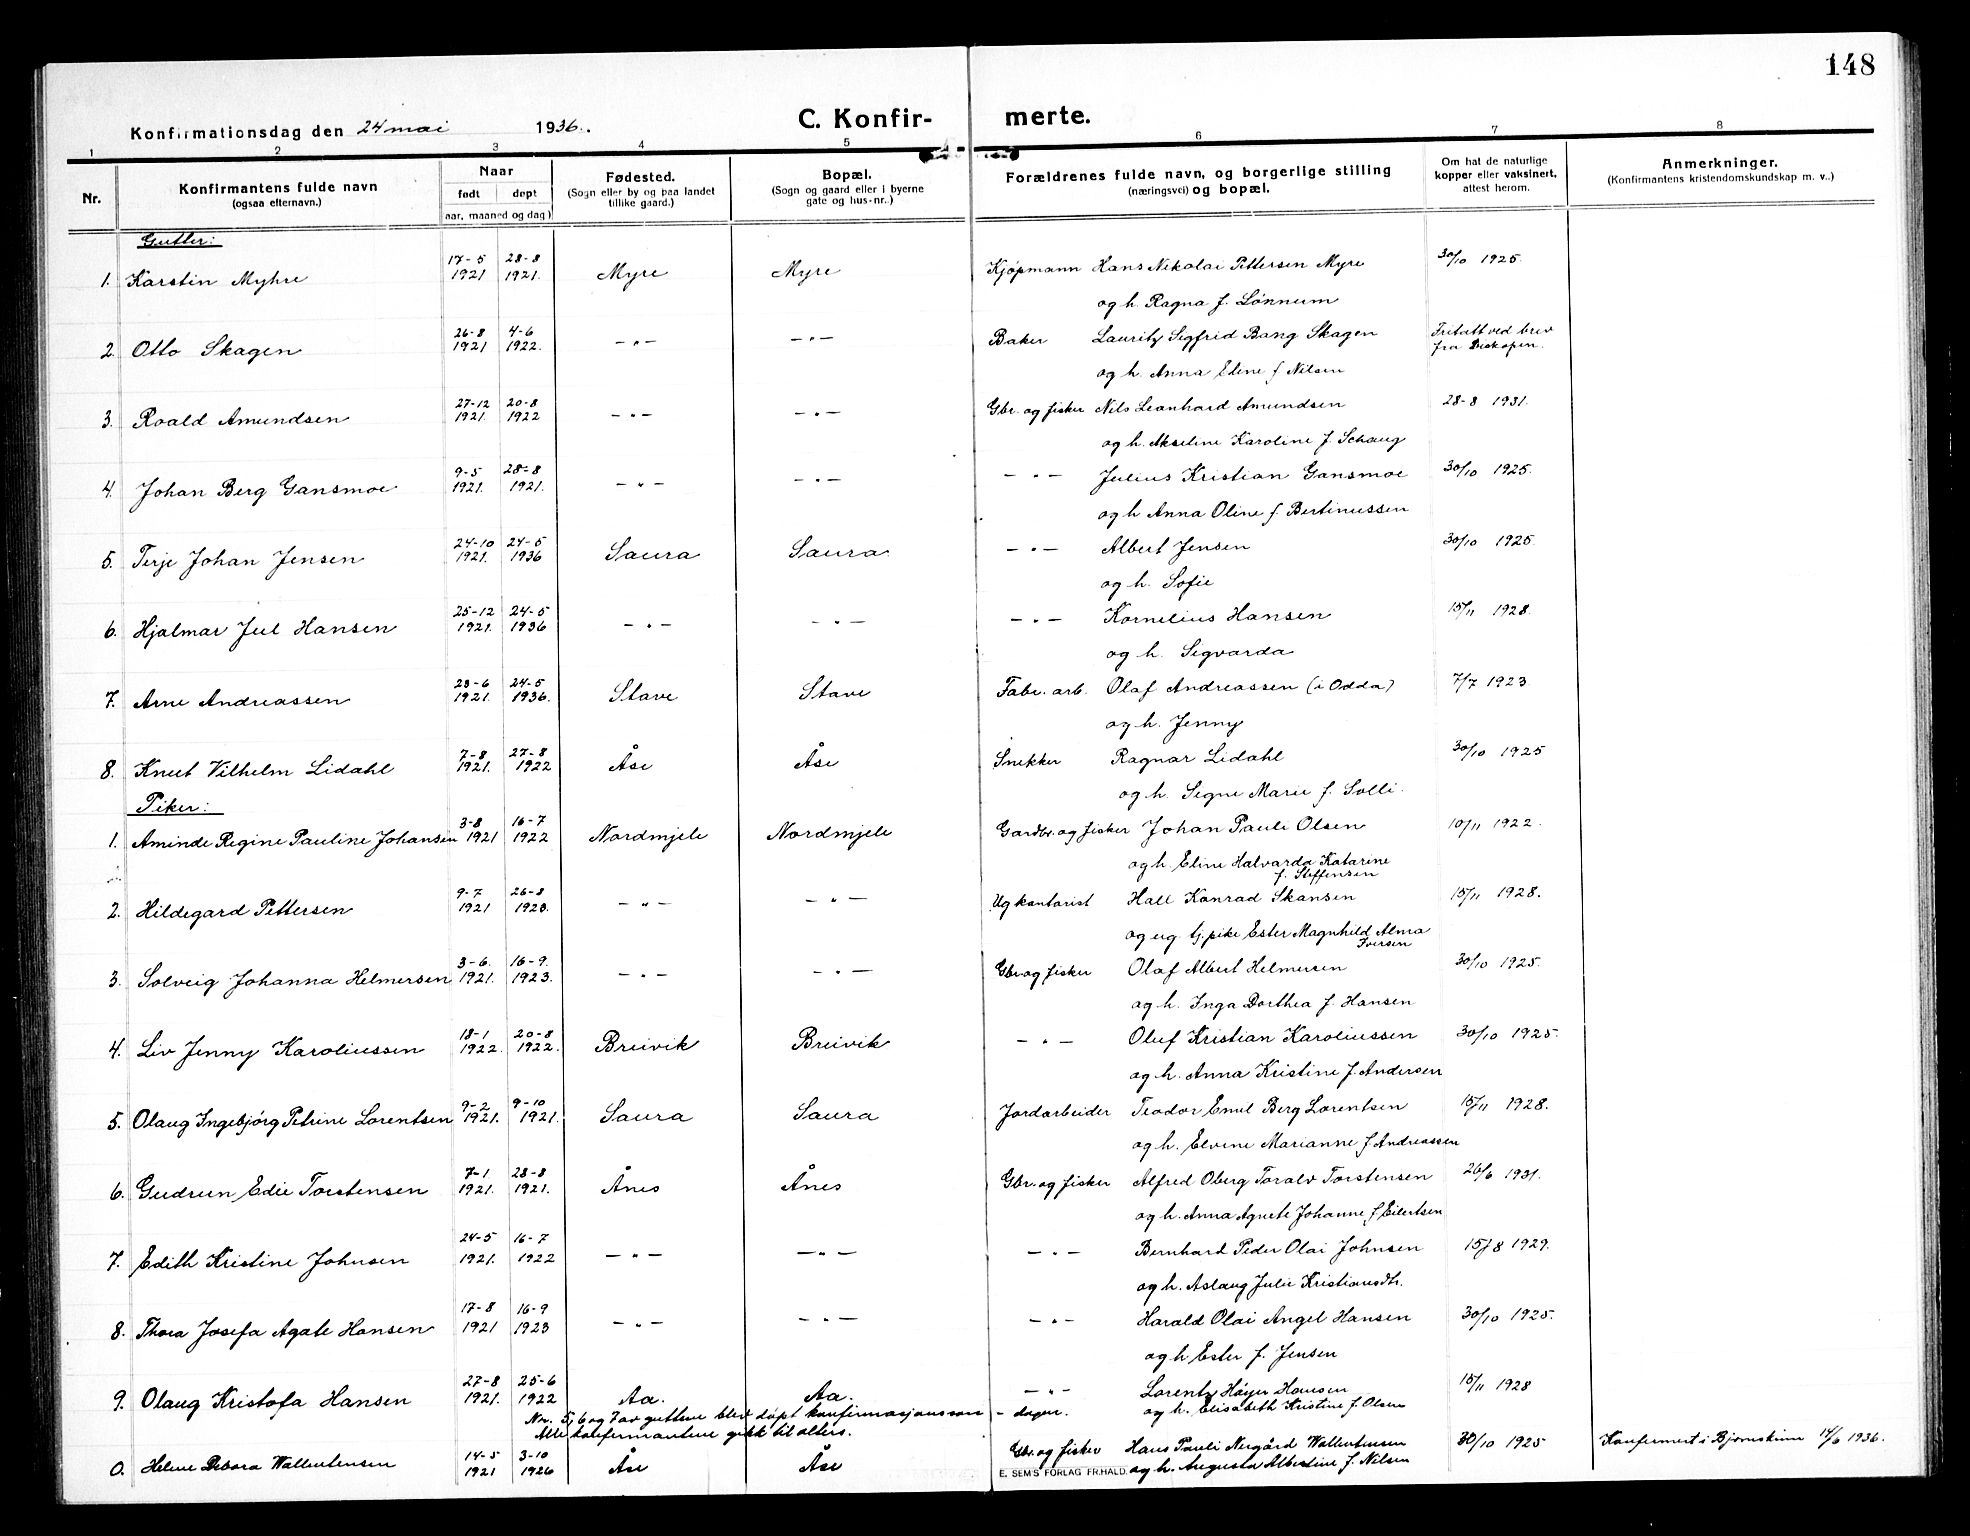 148
C. Konfir- merte.
Konfirmationsdag den 24 mai 1936.
1 2 3 4 5 6 7 8
Nr.
Konfirmantens fulde navn (ogsaa efternavn.)
Naar født døpt aar, maaned og dag)
Fødested. (Sogn eller by og paa landet tillike gaard.)
Bopæl. (Sogn og gaard eller i byerne gate og hus-nr.)
Forældrenes fulde navn, og borgerlige stilling (næringsvei) og bopæl.
Om hat de naturlige kopper eller vaksinert, attest herom.
Anmerkninger. (Konfirmantens kristendomskundskap m. v..)
Gutter:
1. Karstin Myhre 17-5 1921 28-8 1921. Myre Myre Kjøpmann Hans Nikolai Pettersen Myre 30/10 1925.
og h. Ragna f. Lønnum
2. Otto Skagen 26-8 1921 4-6 1922. -"- -"- Baker Lauritz Sigfrid Bang Skagen Fritatt ved brev fra Biskopen.
og h. Anna Eline f Nilsen
3. Roald Amundsen 27-12 1921. 20-8 1922 -"- -"- Gbr. og fisker Nils Leonhard Amundsen 28-8 1931.
og h. Akseline Karoline f. Schaug
4. Johan Berg Gansmoe 9-5 1921. 28-8 1921. -"- -"- -"- Julius Kristian Gansmoe 30/10 1925.
og h Anna Oline f. Bertinussen
5. Terje Johan Jensen 24-10 1921. 24-5 1936 Saura Saura -"- Albert Jensen 30/10 1925.
og h. Sofie
6. Hjalmar Jul Hansen 25-12 1921. 24-5 1936 -"- -"- -"- Kornelius Hansen 15/11 1928.
og h. Sigvarda
7. Arne Andreassen 23-6 1921. 24-5 1936. Stave Stave Fabr. arb. Olaf Andreassen (i Odda) 7/7 1923
og h. Jenny
8. Knut Vilhelm Lidahl 7-8 1921. 27-8 1922 Åse Åse Snekker Ragnar Lidahl 30/10 1925
og h. Signe Marie f. Solli.
Piker:
1. Aminde Regine Pauline Johansen 3-8 1921 16-7 1922 Nordmjele Nordmjele Gardbr. og fisker Johan Pauli Olsen 10/11 1922.
og h. Eline Halvarda Katarine f. Steffensen
2. Hildegard Pettersen 9-7 1921 26-8 1923. -"- -"- Ug kontorist Hall Konrad Skansen 15/11 1928.
og ug. tj.pike Ester Magnhild Alma Iversen
3. Solveig Johanna Helmersen 3-6. 1921. 16-9. 1923. -"- -"- Gbr og fisker Olaf Albert Helmersen 30/10 1925.
og h. Inga Dorthea f. Hansen
4. Liv Jenny Karoliussen 18-1 1922. 20-8 1922. Breivik Breivik -"- Oluf Kristian Karoliussen 30/10 1925.
og h. Anna Kristine f. Andersen
5. Olaug Ingebjørg Petrine Lorentsen 9-2 1921. 9-10 1921. Saura Saura Jordarbeider Teodor Emil Berg Lorentsen 15/11 1928.
og h. Elvine Marianne f Andreassen
6. Gudrun Edie Torstensen 7-1 1921. 28-8 1921. Ånes Ånes Gbr. og fisker Alfred Oberg Toralv Torstensen 26/6 1931.
og h. Anna Agnete Johanne f Eilertsen
7. Edith Kristine Johnsen 24-5 1921. 16-7 1922 -"- -"- -"- Bernhard Peder Olai Johnsen 15/8 1929.
og h. Aslaug Julie Kristiansdtr.
8. Thora Josefa Agate Hansen 17-8 1921 16-9 1923 -"- -"- -"- Harald Olai Angel Hansen 30/10 1925.
og h Ester f. Jensen
9. Olaug Kristofa Hansen 27-8 1921. 25-6 1922 Aa. Aa. -"- Lorentz Høyer Hansen 15/11 1928
og h. Elisabeth Kristine f. Olsen
Nr. 5, 6 og 7 av guttene blev døpt konfirmasjonson-dagen.
Alle konfirmantene gikk til alters.
0. Helene Debora Wallentensen 14-5 1921 3-10 1926 Åse Åse Gbr. og fisker Hans Pauli Nergård Wallentensen 30/10 1925 Konfirmert i Bjørnskinn 14/6 1936.
og h. Augusta Albertine f. Nilsen
E. SEM'S FORLAG FR.HALD.